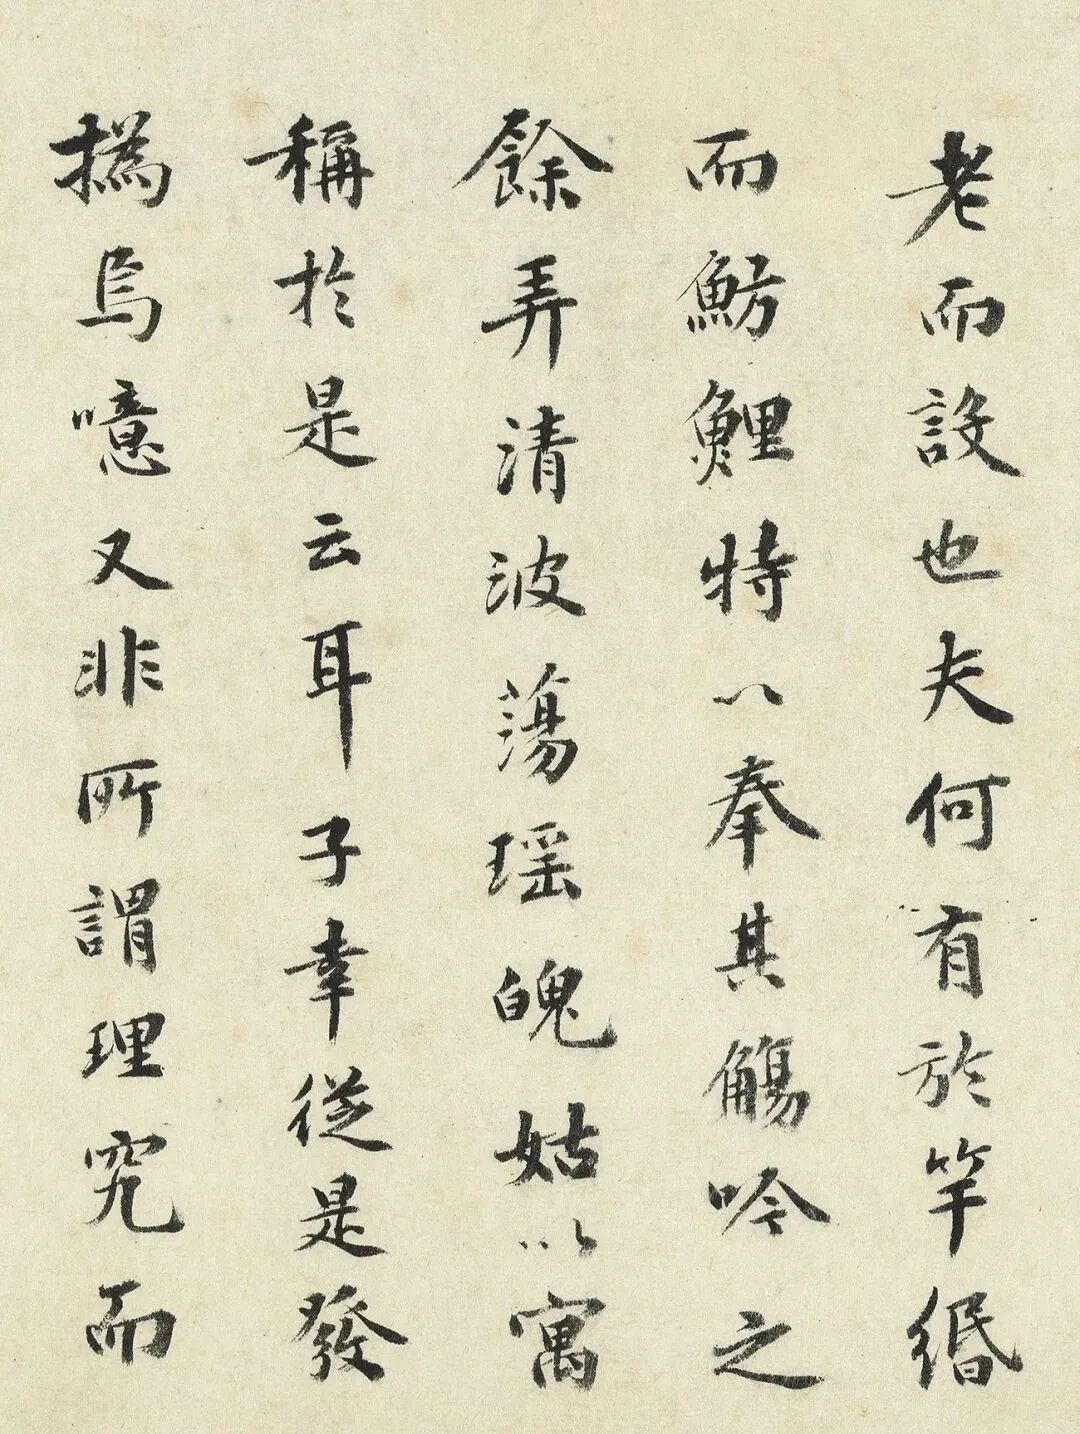 老而設也夫何有於竿緡
而魴鯉特以奉其觴吟之
餘弄清波蕩瑶魄姑以寓
稱於是云耳子幸從是發
撝焉噫又非所謂理究而